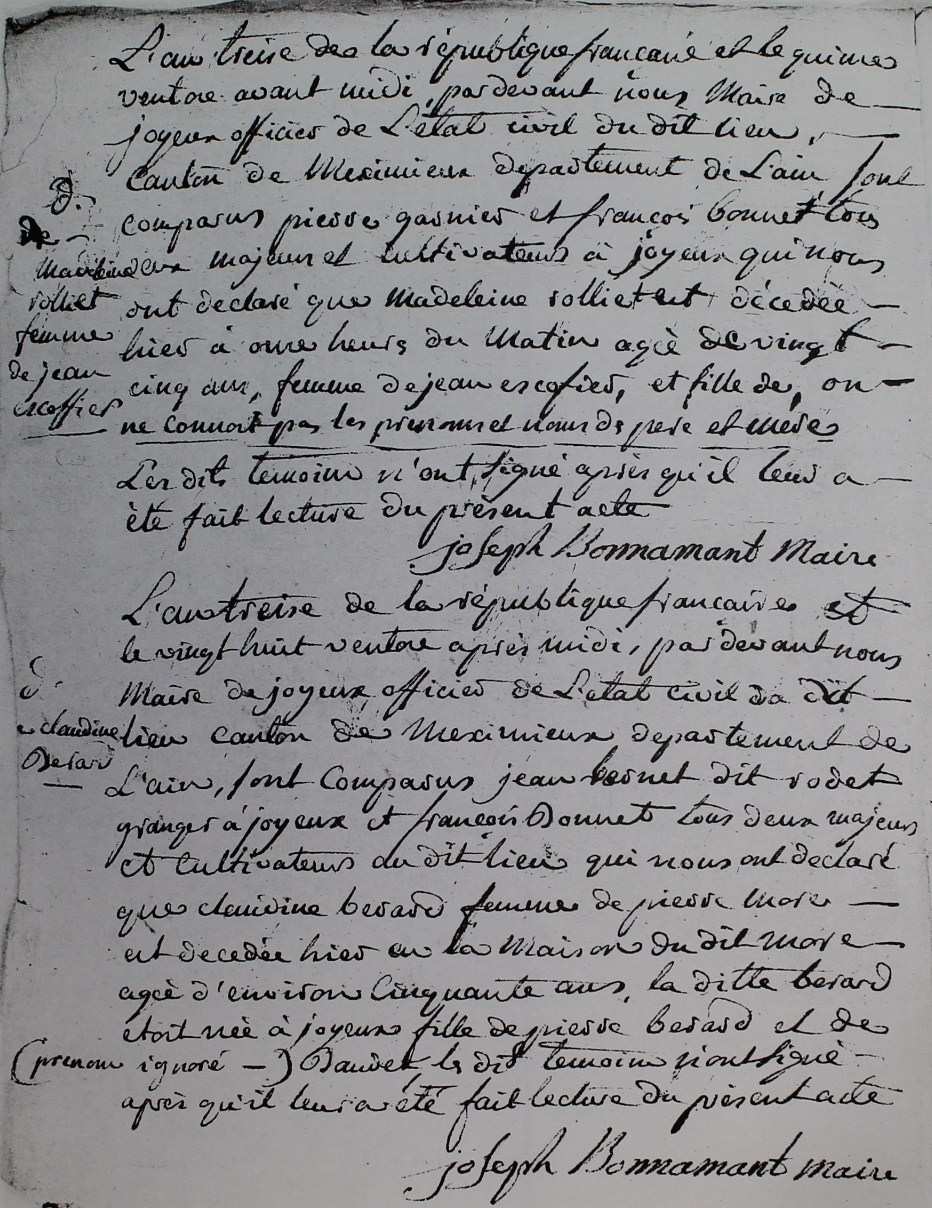 L'an treise de la république francaise et le quinse
ventose avant midi, pardevant nous Maire de
joyeux officier de L'état civil du dit lieu,
Canton de Meximieux departement de L'ain sont
comparus pierre garnier et françois bonnet tous
deux majeurs et Cultivateurs à joyeux qui nous
ont declaré que Madeleine rolliet est décedée
hier à onse heurs du Matin agèe de vingt
cinq ans, femme de jean escofier, et fille de, on
ne connoit pas les prenoms et noms de pere et mere
Les dits temoins n'ont signé après qu'il leur a
été fait lecture du présent acte
joseph Bonnamant Maire
d.
de
Madeleine
rolliet
femme
de jean
escoffier
L'an treise de la république francaise et
le vingt huit ventose après midi, pardevant nous
Maire de joyeux officier de L'etat civil du dit
lieu Canton de Meximieux departement de
L'ain, sont Comparus jean bernet dit rodet
granger à joyeux et françois Bonnet tous deux majeurs
et Cultivateurs au dit lieu qui nous ont declaré
que claudine berard femme de pierre More
est decedée hier en la Maison du dit More
agèe d'environ Cinquante ans, la ditte berard
étoit née à joyeux fille de pierre berard et de
(prenom ignoré —) Baudet, les dit temoins n'ont signé
après qu'il leur a été fait lecture du présent acte
joseph Bonnamant Maire
d.
e claudine
Berard